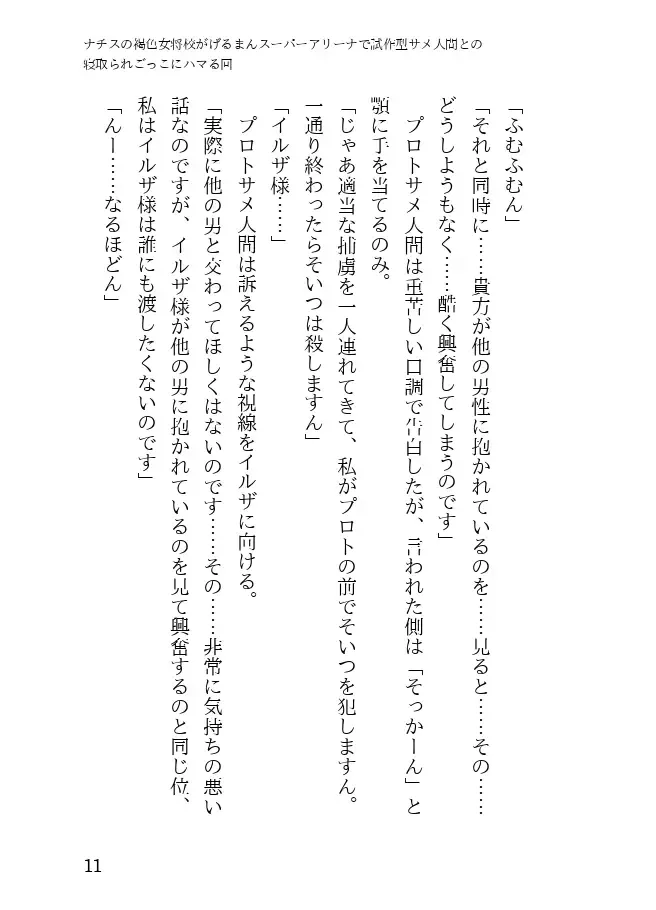 ナチスの褐色女将校がげるまんスーパーアリーナで試作型サメ人間との
寝取られごっこにハマる回
「ふむふむん」
「それと同時に……貴方が他の男性に抱かれているのを……見ると……その……
どうしようもなく……酷く興奮してしまうのです」
プロトサメ人間は重苦しい口調で告白したが、言われた側は「そっかーん」と
顎に手を当てるのみ。
「じゃあ適当な捕虜を一人連れてきて、私がプロトの前でそいつを犯しますん。
一通り終わったらそいつは殺しますん」
「イルザ様……」
プロトサメ人間は訴えるような視線をイルザに向ける。
「実際に他の男と交わってほしくはないのです……その……非常に気持ちの悪い
話なのですが、イルザ様が他の男に抱かれているのを見て興奮するのと同じ位、
私はイルザ様は誰にも渡したくないのです」
「んー……なるほどん」
11